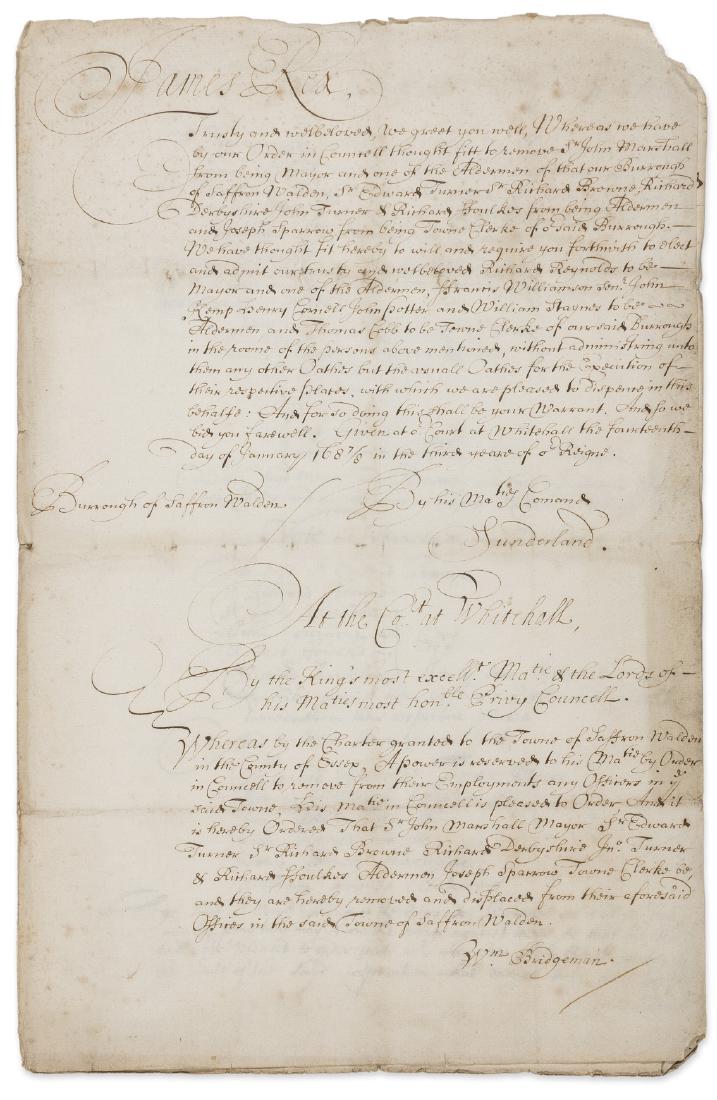 James Rex,
Trusty and welbeloved, We greet you well, Whereas we have
by our Order in Councell thought fitt to remove Sr. John Marshall
from being Mayor and one of the Aldermen of that our Burrough
of Saffron Walden, Sr. Edward Turner Sr. Richard Browne, Richard
Derbyshire John Turner & Richard Foulkes from being Aldermen
and Joseph Sparrow from being Towne Clerke of or said Burrough.
We have thought fit hereby to will and require you forthwith to elect
and admit our trusty and welbeloved Richard Reynolds to be
Mayor and one of the Aldermen, Francis Williamson Senr. John
Kemp Henry Cornell John Potter and William Staynes to be
Aldermen and Thomas Cobb to be Towne Clerke of our said Burrough
in the roome of the persons above mentioned, without administring unto
them any other Oathes but the usuall Oathes for the Execution of
their respective places, with which we are pleased to dispence in this
behalfe: And for so doing this shall be your Warrant. And so we
bid you farewell. Given at or Court at Whitehall the fourteenth
day of January 1687/8 in the third yeare of or Reigne.
Burrough of Saffron Walden
By his Matys Comand
Sunderland.
At the Cort at Whitehall,
By the King's most excellt. Matie & the Lords of
his Maties most honble Privy Councell.
Whereas by the Charter granted to the Towne of Saffron Walden
in the County of Essex, A power is reserved to his Matie by Order
in Councell to remove from their Employments any Officers in ye
said Towne, His Matie in Councell is pleased to Order And it
is hereby Ordered That Sr John Marshall Mayor Sr Edward
Turner Sr Richard Browne Richard Derbyshire Jno. Turner
& Richard Foulkes Aldermen Joseph Sparrow Towne Clerke be,
and they are hereby removed and displaced from their aforesaid
Offices in the said Towne of Saffron Walden.
Wm Bridgeman.